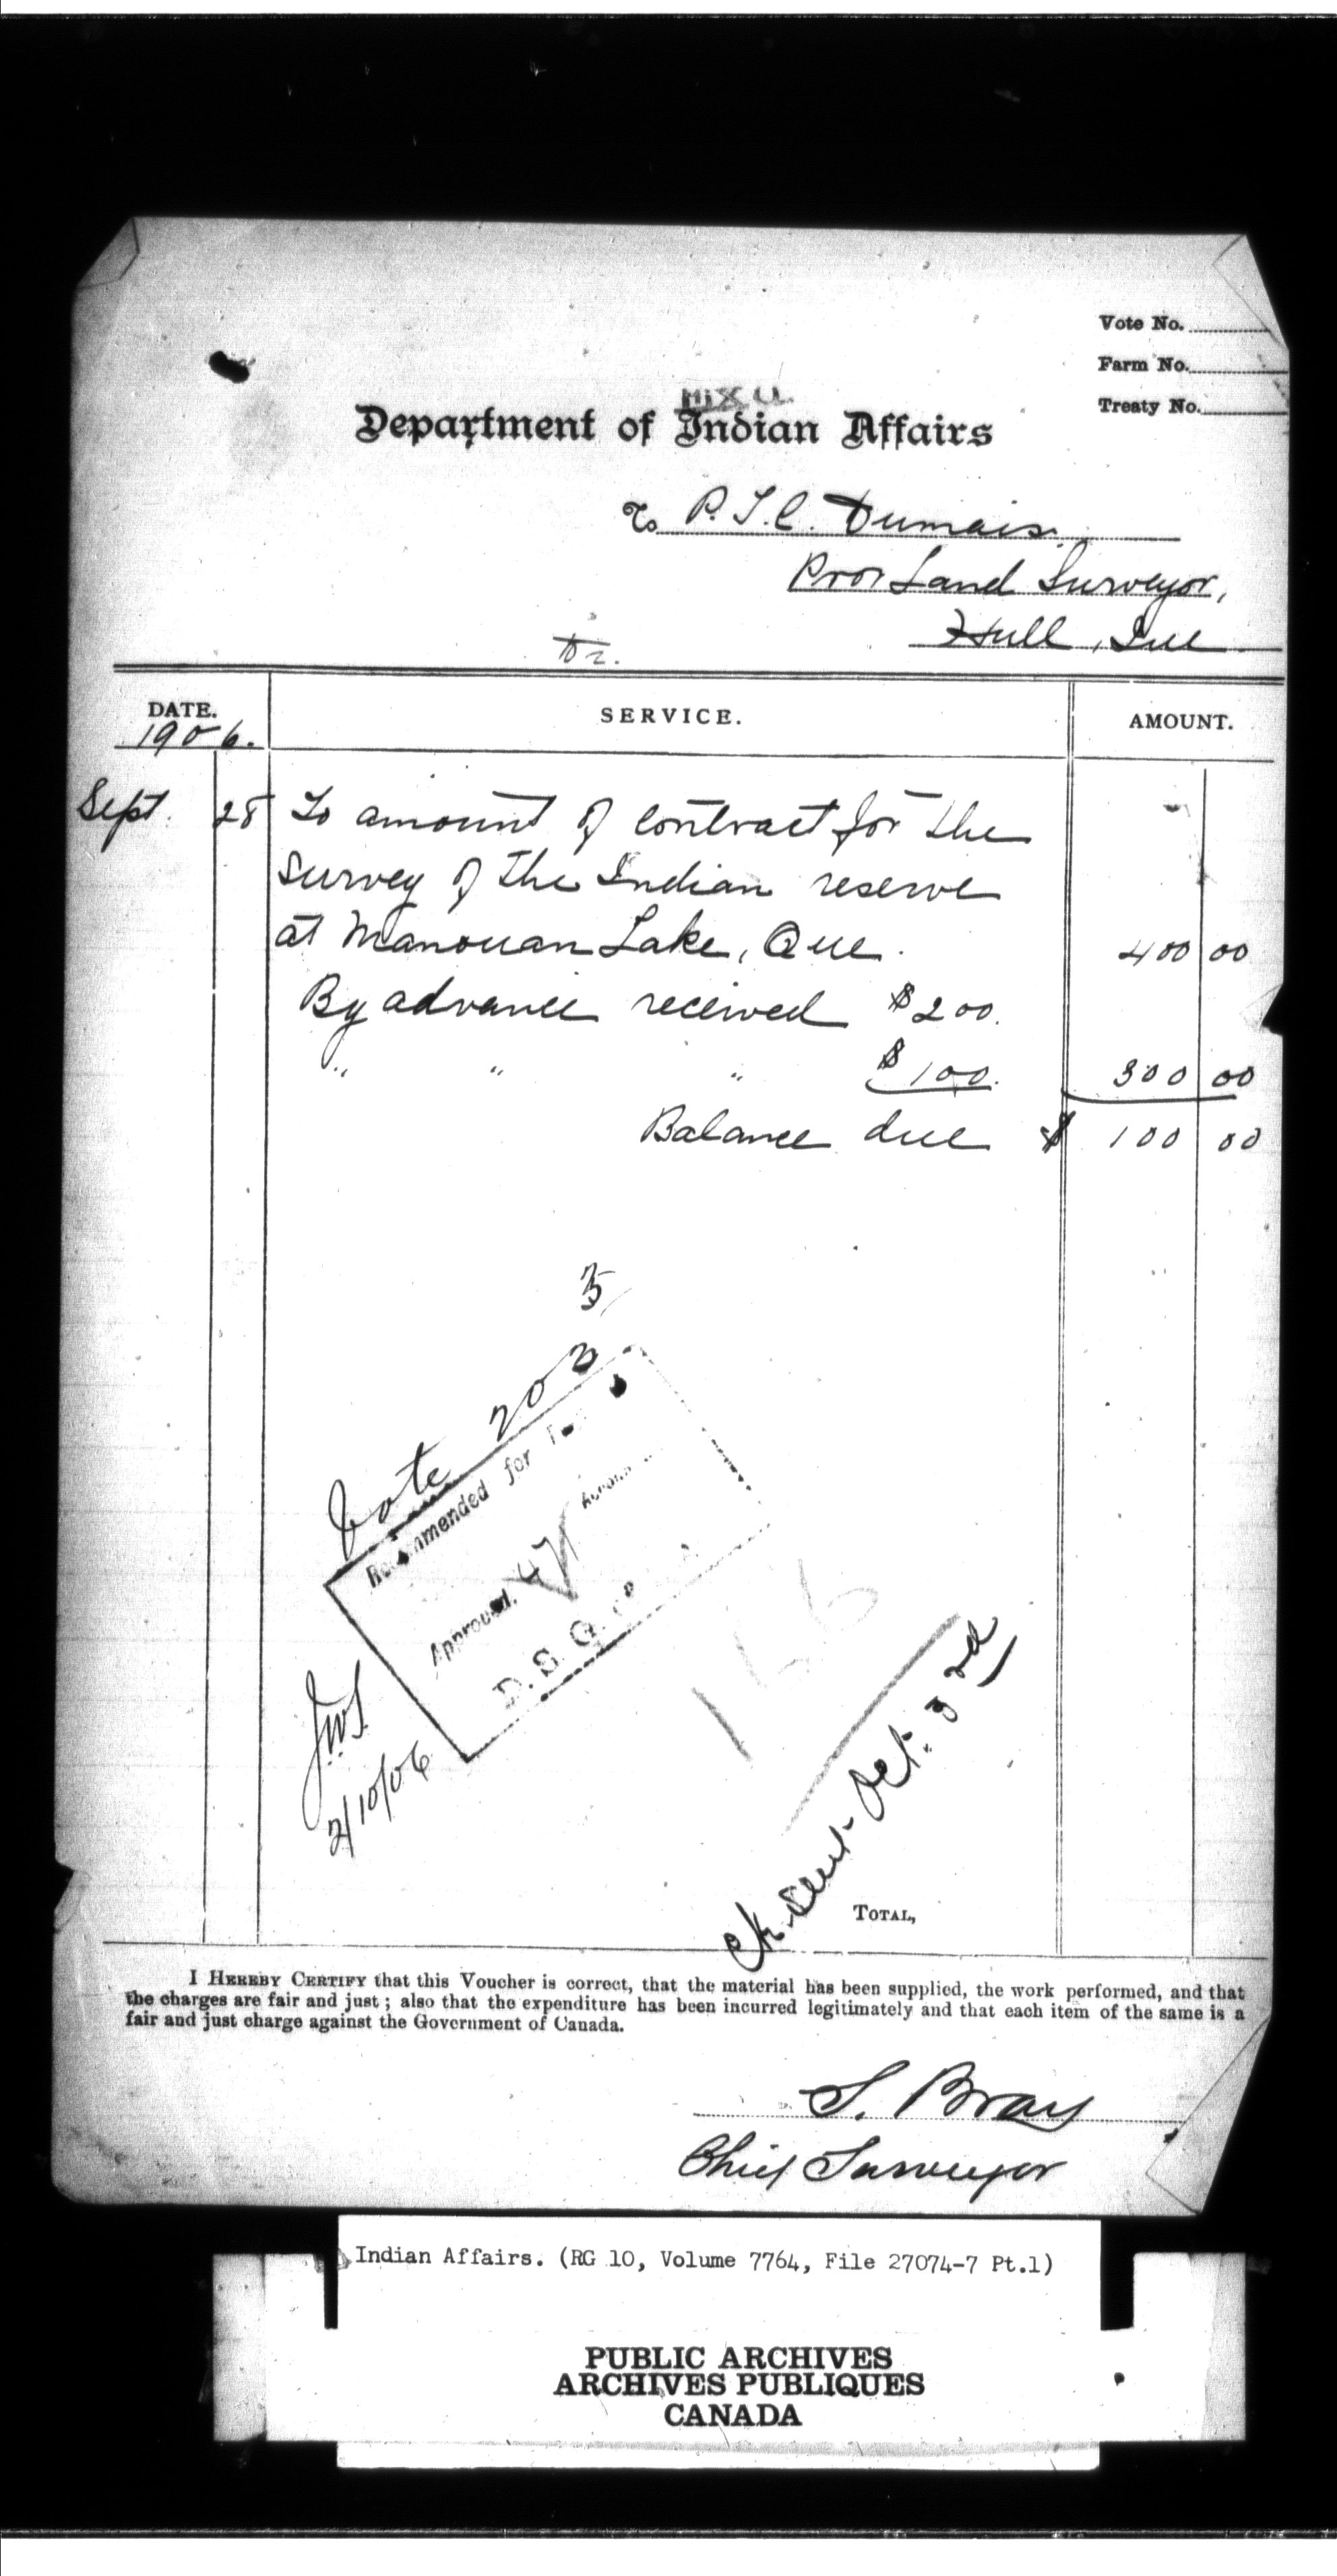 Vote No.
Farm No.
Treaty No.
Department of Indian Affairs
To P. T. C. Dumais.
Prov Land Surveyor,
Hull, Que
Dr.
DATE. SERVICE. AMOUNT.
1906.
Sept. 28 To amount of contract for the
survey of the Indian reserve
at Manouan Lake, Que. 400 00
By advance received $200.
" " " $100. 300 00
Balance due $ 100 00
Vote 203
Recommended for
Approved.
D. S. G.
JWS
2/10/06
Ck. sent Oct. 3rd
TOTAL,
I HEREBY CERTIFY that this Voucher is correct, that the material has been supplied, the work performed, and that
the charges are fair and just; also that the expenditure has been incurred legitimately and that each item of the same is a
fair and just charge against the Government of Canada.
S. Bray
Chief Surveyor
Indian Affairs. (RG 10, Volume 7764, File 27074-7 Pt.1)
PUBLIC ARCHIVES
ARCHIVES PUBLIQUES
CANADA